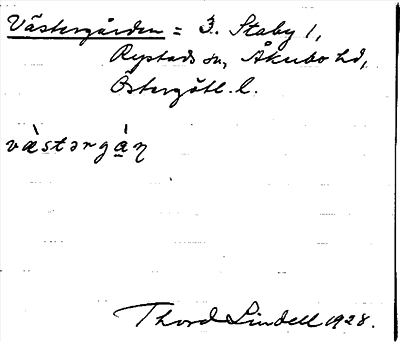 Västergården = 3. Staby 1,
Rystads sn, Åkerbo hd,
Östergötl. l.
væ̀stərgɑ̀ɳ
Thord Lindell 1928.